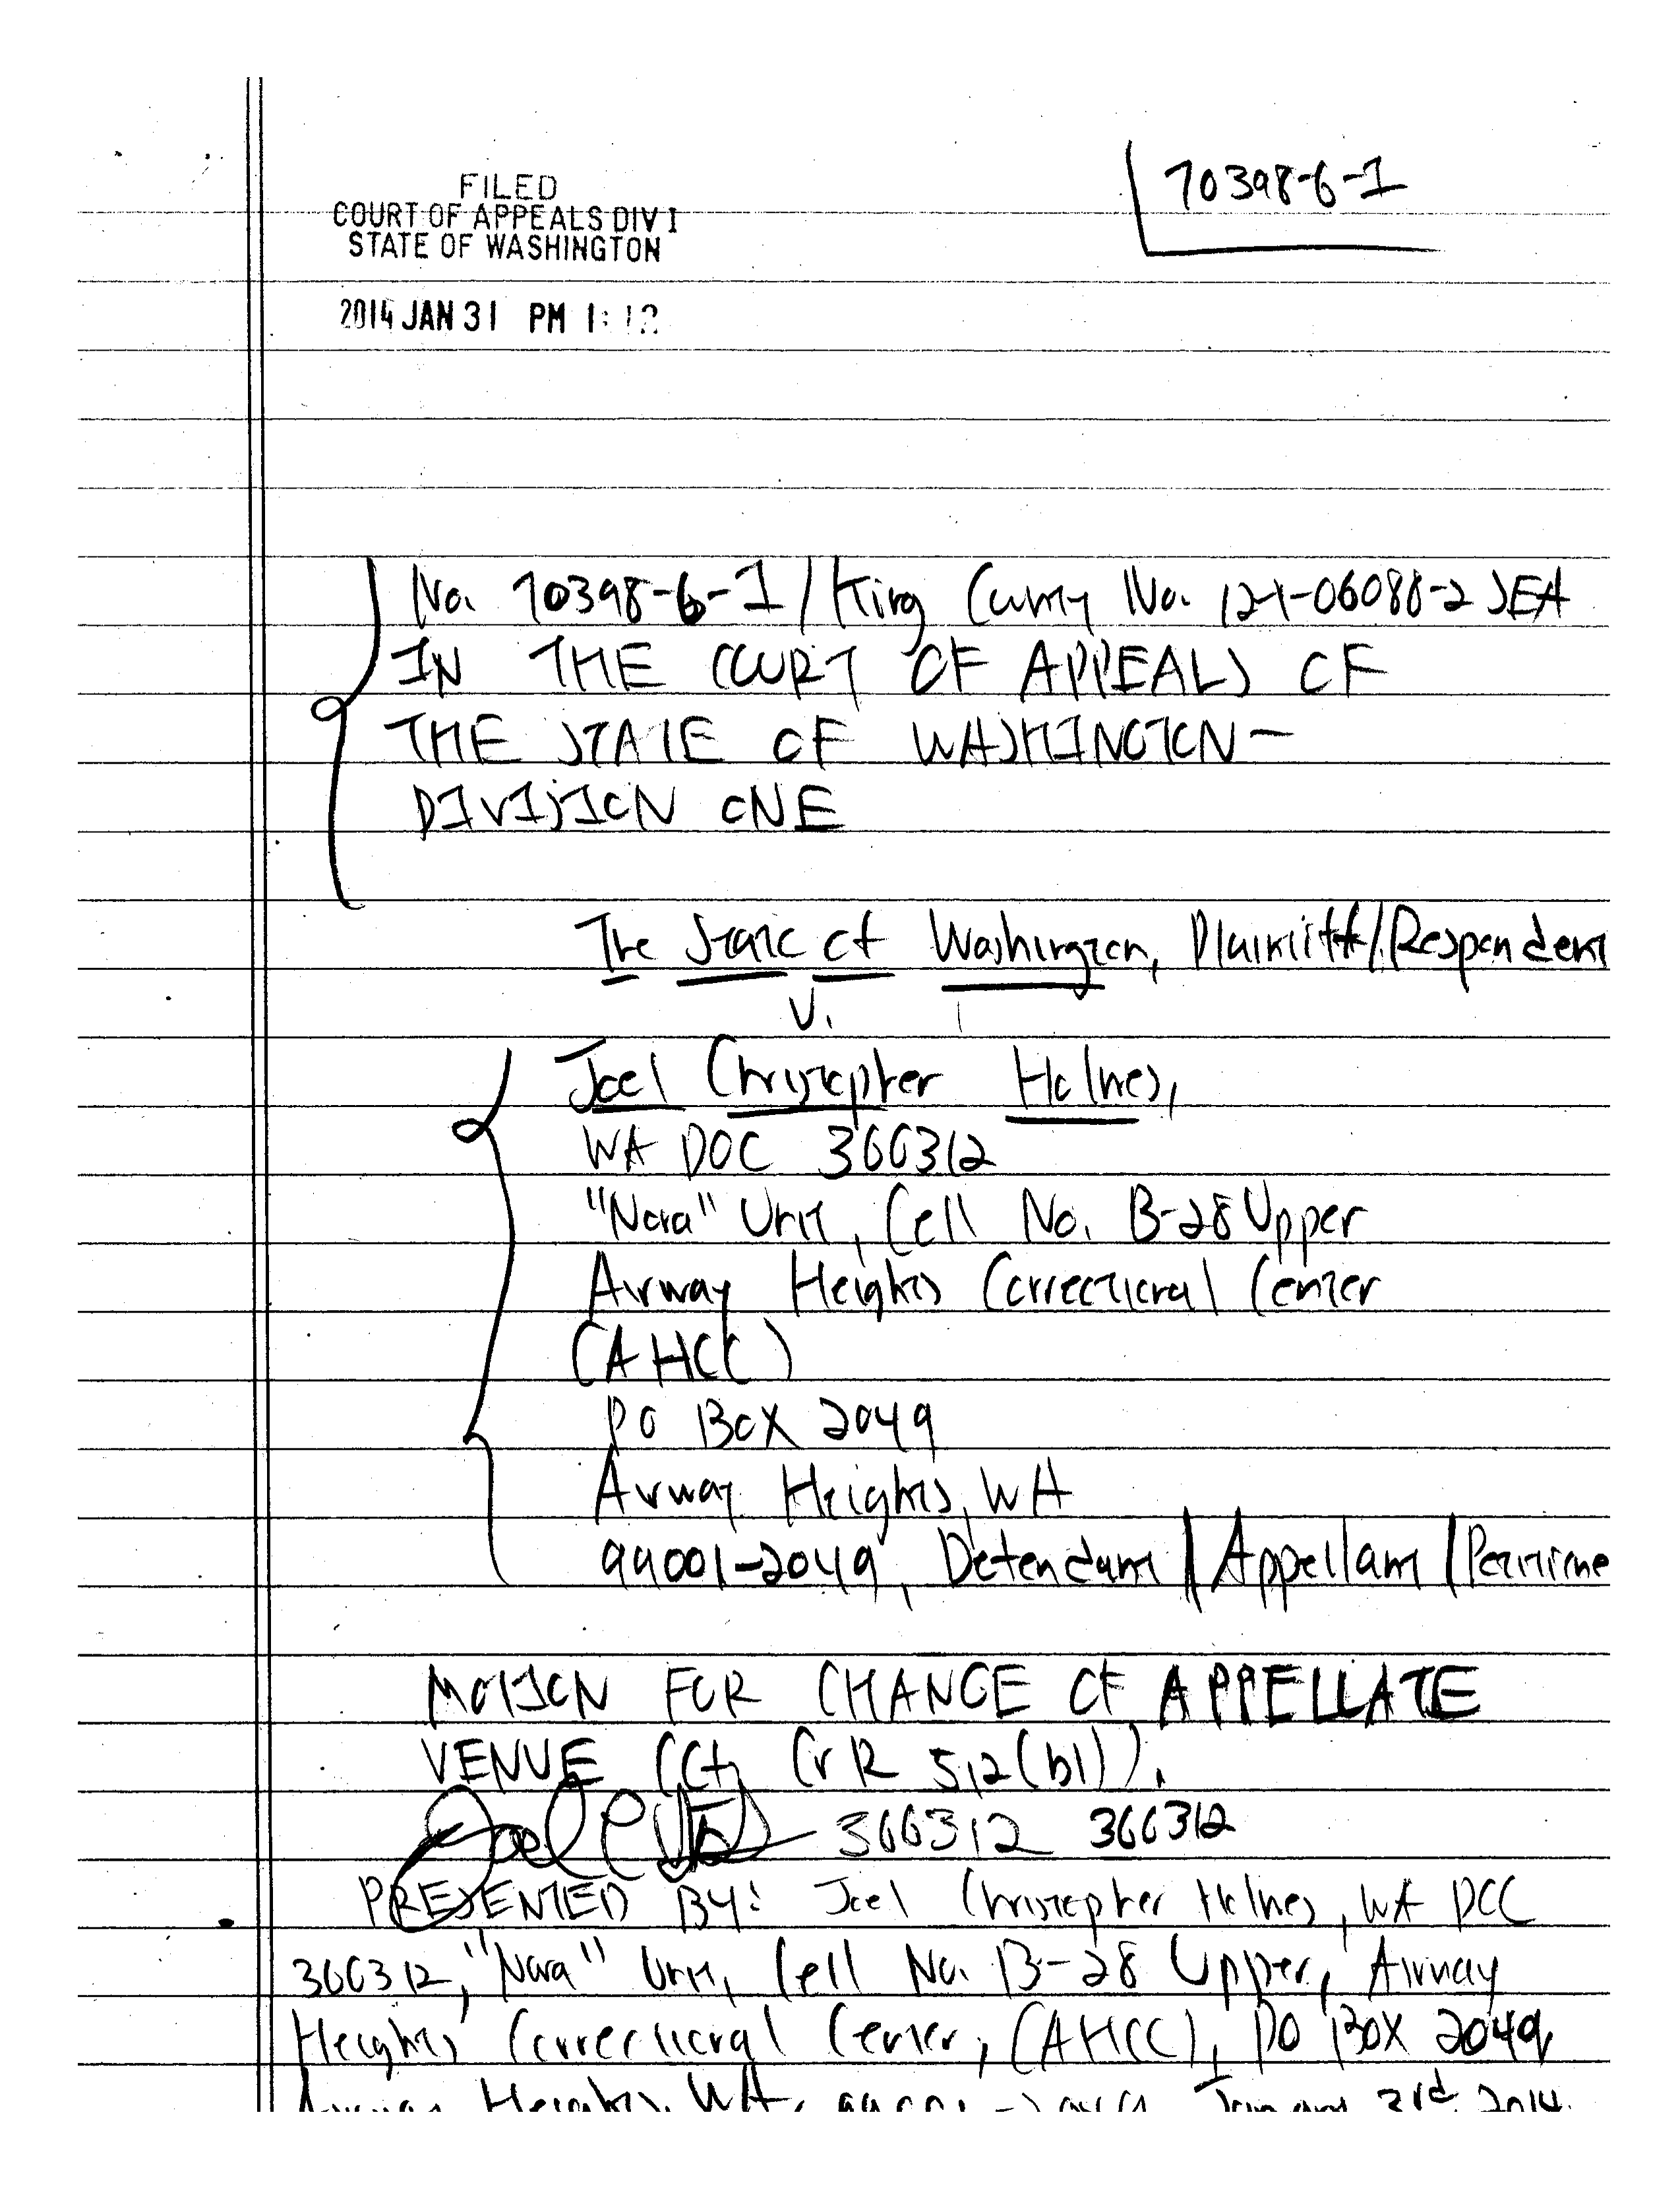 FILED
COURT OF APPEALS DIV I
STATE OF WASHINGTON
2014 JAN 31 PM 1:12
70398-6-1
No. 70398-6-1 / King County No. 12-1-06088-2 SEA
IN THE COURT OF APPEALS OF
THE STATE OF WASHINGTON-
DIVISION ONE
The State of Washington, Plaintiff/Respondent
V.
Joel Christopher Holmes,
WA DOC 366312
"Nora" Unit, Cell No. B-28 Upper
Airway Heights Correctional Center
(AHCC)
PO Box 2049
Airway Heights, WA
99001-2049, Defendant / Appellant / Petitione
MOTION FOR CHANGE OF APPELLATE
VENUE (Cf. CrR 5.2(b)).
366312 366312
PRESENTED BY: Joel Christopher Holmes, WA DOC
366312, "Nora" Unit, Cell No. B-28 Upper, Airway
Heights Correctional Center, (AHCC), PO BOX 2049,
Airway Heights, WA, 99001-2049 January 3rd, 2014.